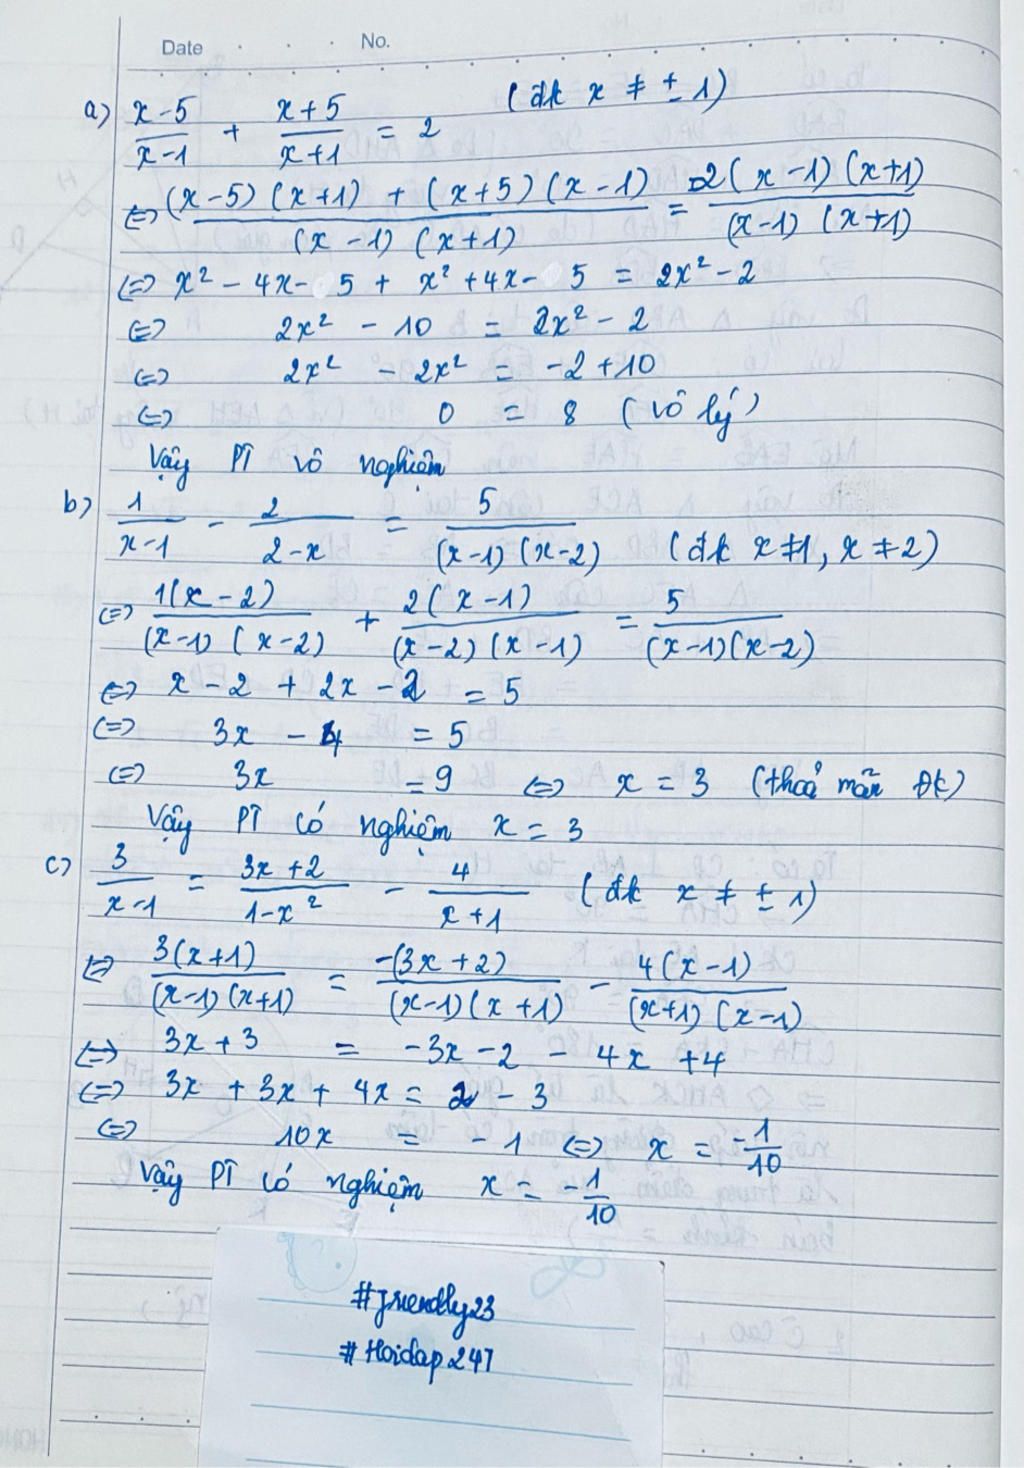 Date . . . No.
a) (x-5)/(x-1) + (x+5)/(x+1) = 2 (đk x ≠ ± 1)
⇔ ((x-5)(x+1) + (x+5)(x-1))/((x-1)(x+1)) = 2(x-1)(x+1)/((x-1)(x+1))
⇔ x² - 4x - 5 + x² + 4x - 5 = 2x² - 2
⇔ 2x² - 10 = 2x² - 2
⇔ 2x² - 2x² = -2 + 10
⇔ 0 = 8 (vô lý)
Vậy PT vô nghiệm
b) 1/(x-1) - 2/(2-x) = 5/((x-1)(x-2)) (đk x ≠ 1, x ≠ 2)
⇔ 1(x-2)/((x-1)(x-2)) + 2(x-1)/((x-2)(x-1)) = 5/((x-1)(x-2))
⇔ x - 2 + 2x - 2 = 5
⇔ 3x - 4 = 5
⇔ 3x = 9 ⇔ x = 3 (thoả mãn đk)
Vậy PT có nghiệm x = 3
c) 3/(x-1) = (3x+2)/(1-x²) - 4/(x+1) (đk x ≠ ± 1)
⇔ 3(x+1)/((x-1)(x+1)) = -(3x+2)/((x-1)(x+1)) - 4(x-1)/((x+1)(x-1))
⇔ 3x + 3 = -3x - 2 - 4x + 4
⇔ 3x + 3x + 4x = 2 - 3
⇔ 10x = -1 ⇔ x = -1/10
Vậy PT có nghiệm x = -1/10
#friendly23
#Hoidap247